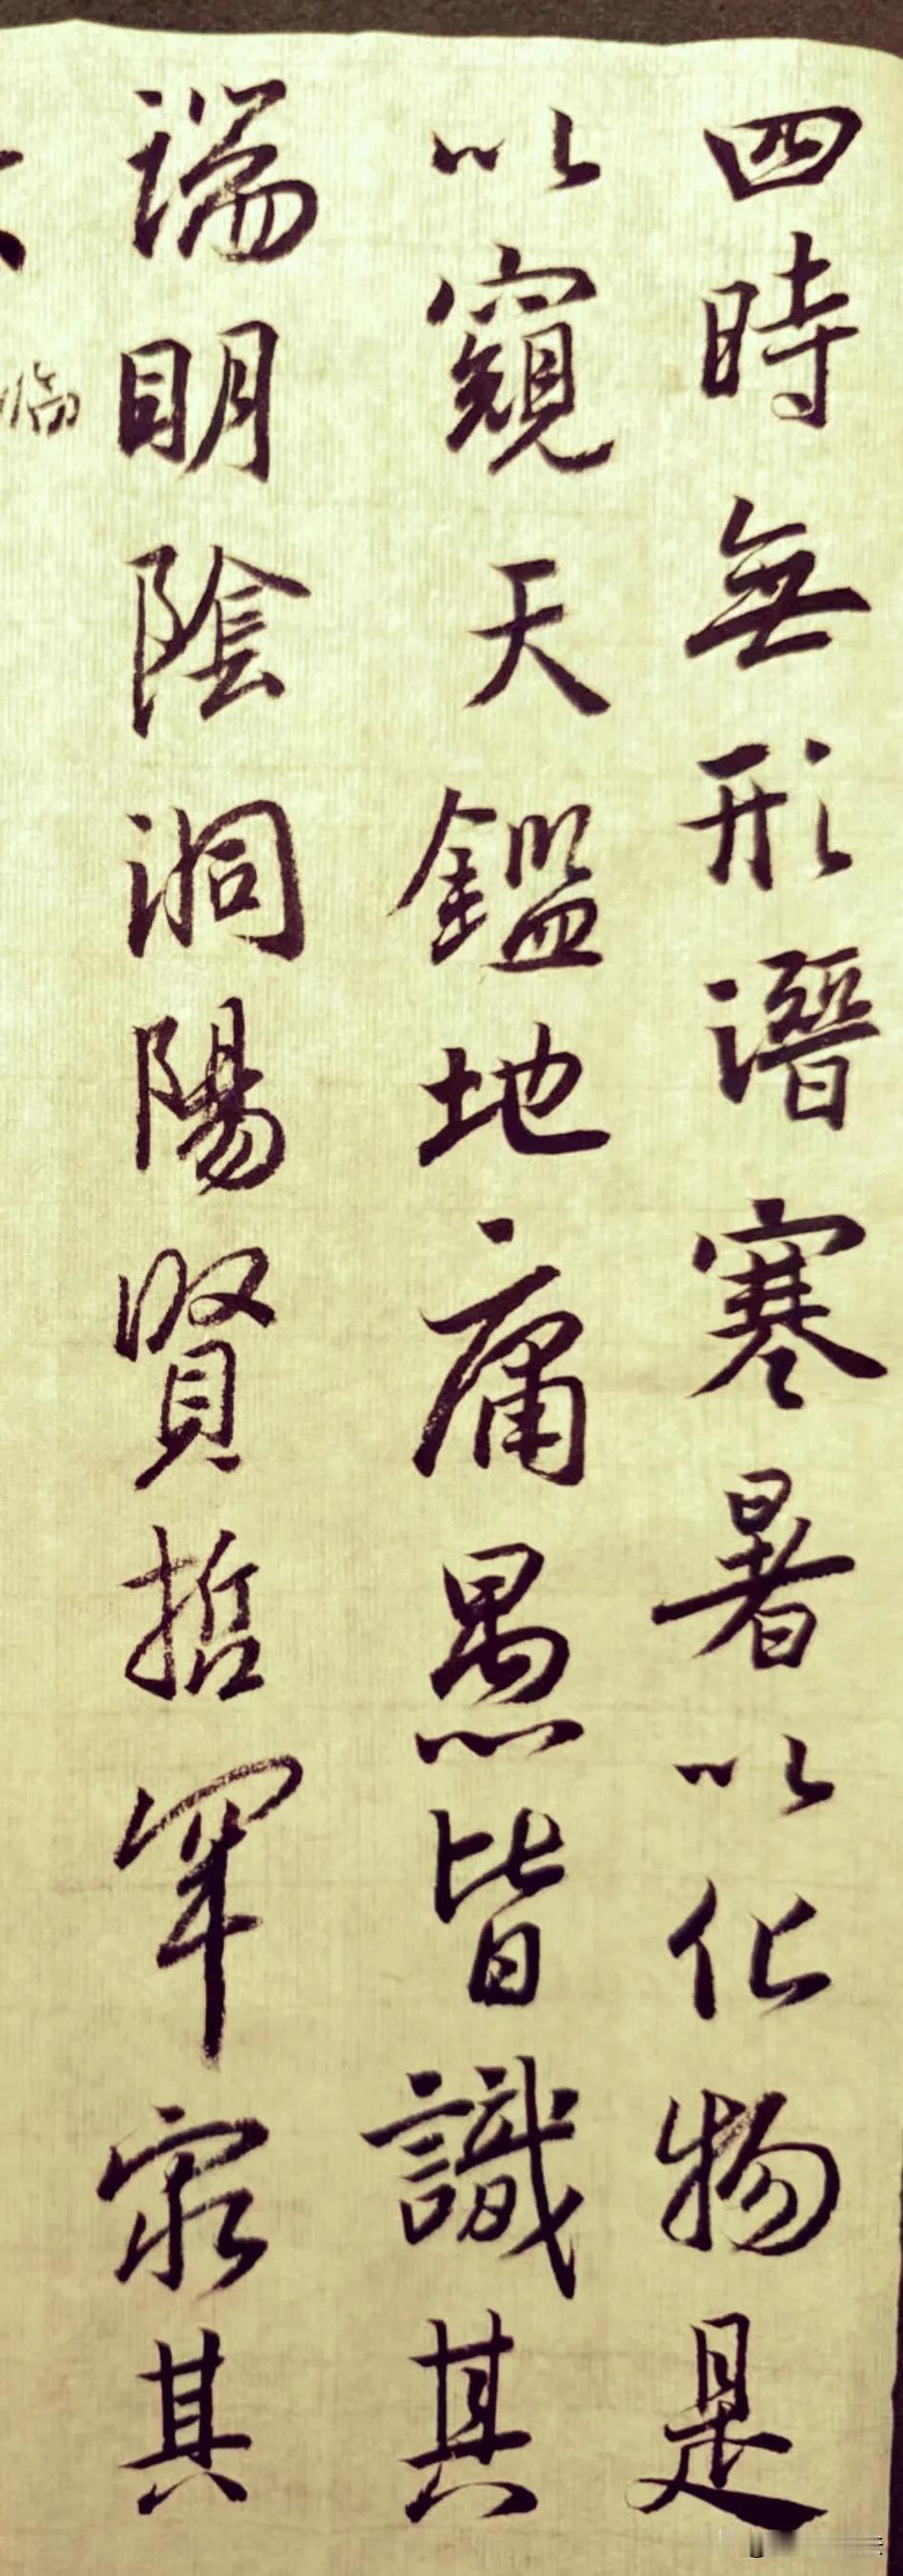 四時無形潛寒暑以化物是
以窺天鑑地庸愚皆識其
端明陰洞陽賢哲罕窮其
临